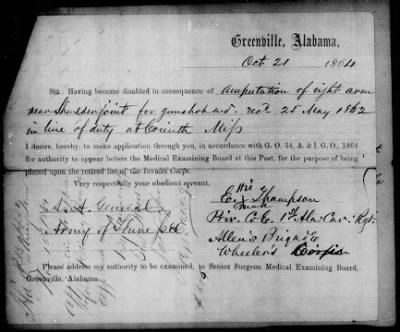 Greenville, Alabama,
Oct 21 1864
SIR: Having become disabled in consequence of amputation of right arm
near Shoulder joint for gunshot wd. rec'd 25 May 1862
in line of duty at Corinth Miss
I desire, hereby, to make application through you, in accordance with G. O. 34, A. & I. G. O., 1864
for authority to appear before the Medical Examining Board at this Post, for the purpose of being
placed upon the retired list of the Invalid Corps.
Very respectfully your obedient servant,
his
X Thompson
mark
General
Army of
Co. E. 1st Ala Cav. Regt
Allen's Brigade
Wheeler's Corps
Please address my authority to be examined, to Senior Surgeon Medical Examining Board,
Greenville, Alabama.